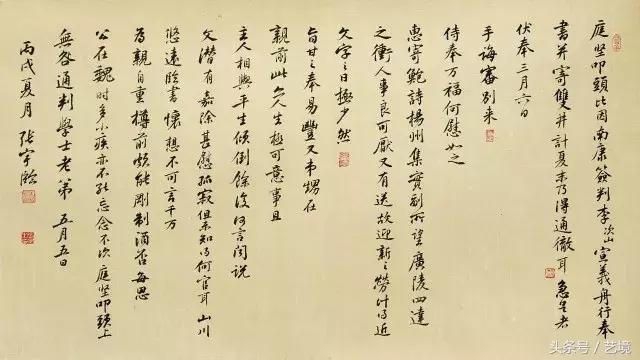 庭堅叩頭比因南康簽判李次山宣義舟行奉
書并寄雙井計夏末乃得通徹耳急足者
伏奉三月六日
手誨審別來
侍奉万福何慰如之
惠寄鮑詩楊州集實副所望廣陵四達
之衝人事良可厭又有送故迎新之勞計得近
文字之日極少然
旨甘之奉易豐又弟甥在
親前此亦人生極可意事且
主人相與平生傾倒餘復何言聞說
文潛有嘉除甚慰孤寂但未知得何官耳山川
悠遠臨書懷想不可言千万
為親自重樽前頗能剛制酒否每思
公在魏時多小疾亦不能忘念不次庭堅叩頭上
無咎通判學士老弟 五月五日
丙戌夏月 張宇
头条号 / 艺境